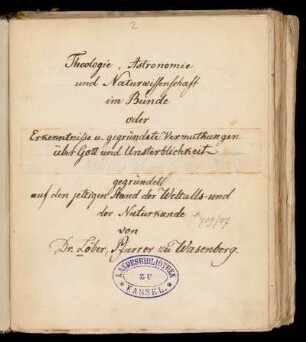 2
Theologie, Astronomie
und Naturwissenschaft
im Bunde
oder
Erkenntniße u. gegründete Vermuthungen
über Gott und Unsterblichkeit
gegründet
auf den jetzigen Stand der Weltalls- und
der Naturkunde
von
Dr. Löber, Pfarrer zu Wasenberg.
LANDESBIBLIOTHEK
ZU
KASSEL.